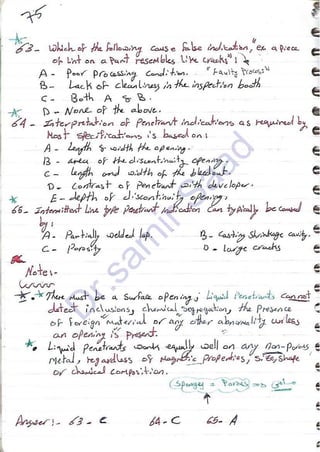 75
63- Which of the following cause false indication, "ex a piece
of lint on a part resembles like cracks" :
A - Poor processing condition. "Faulty Process"
B- Lack of cleanliness in the inspection booth
C - Both A & B.
D - None of the above.
64 - Interpretation of Penetrant indications as required by
Most specifications is based on :
A - Length & width the opening.
B - area of the discontinuity opening.
C - length and width of the bleedout.
D - Contrast of Penetrant with developer.
E - depth of discontinuity opening.
65- Intermittent line type Penetrant indication can typically be caused
by :
A- Partially welded lap. B - Casting Shrinkage cavity.
C - Porosity D - large cracks
Notes:-
I - There Must be a Surface opening; Liquid Penetrants Can not
detect inclusions, chemical segregation, the Presence
of foreign material or any other abnormality unless
an opening is present.
Liquid Penetrants works equally well on any non-porous
Metal, regardless of Magnetic properties, Size, Shape
or chemical composition.
Sponges = Porous
Answer:- 63 - C 64 - C 65 - A
Dr.samir saad